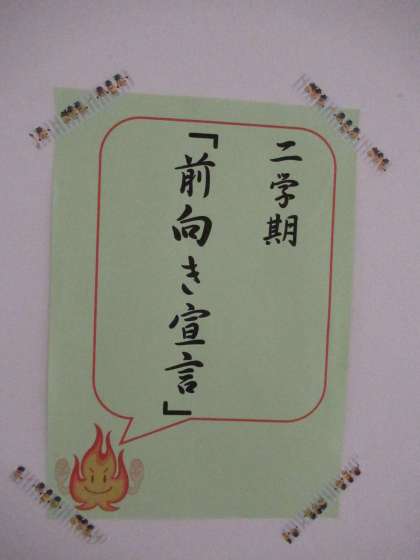 二学期
「前向き宣言」